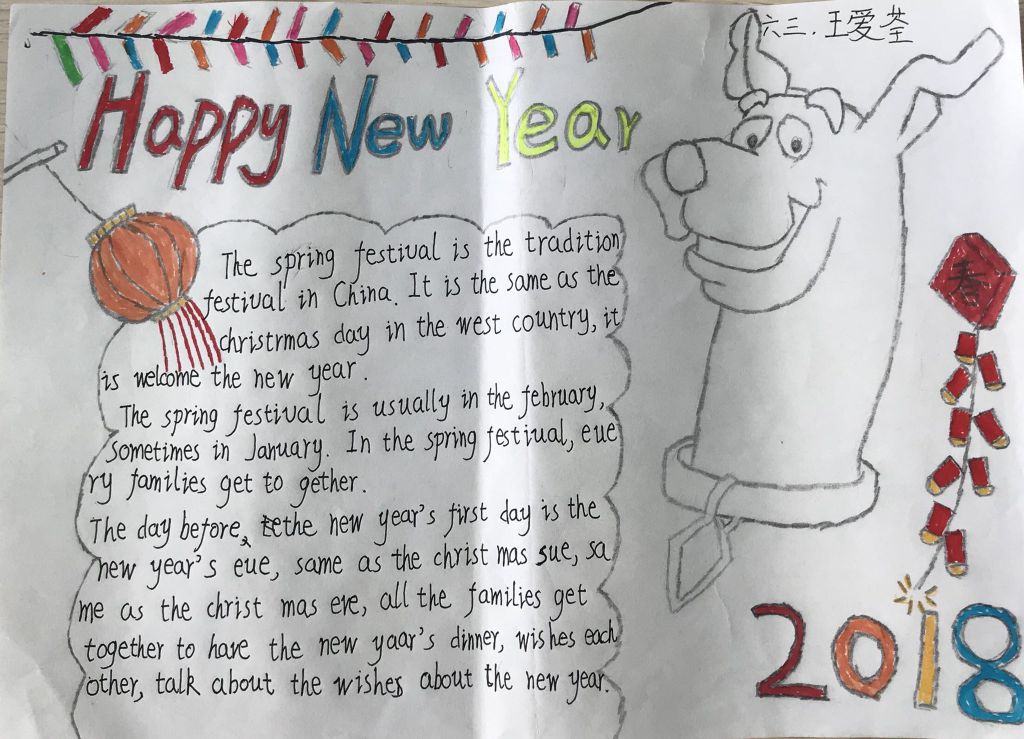 六三.王爱荃
Happy New Year
The spring festival is the tradition
festival in China. It is the same as the
christrmas day in the west country, it
is welcome the new year.
The spring festival is usually in the february,
sometimes in January. In the spring festiual, eue
ry families get to gether.
The day before, the new year's first day is the
new year's eue, same as the christ mas sue, sa
me as the christ mas eve, all the families get
together to have the new yaar's dinner, wishes each
other, talk about the wishes about the new year.
春
2018